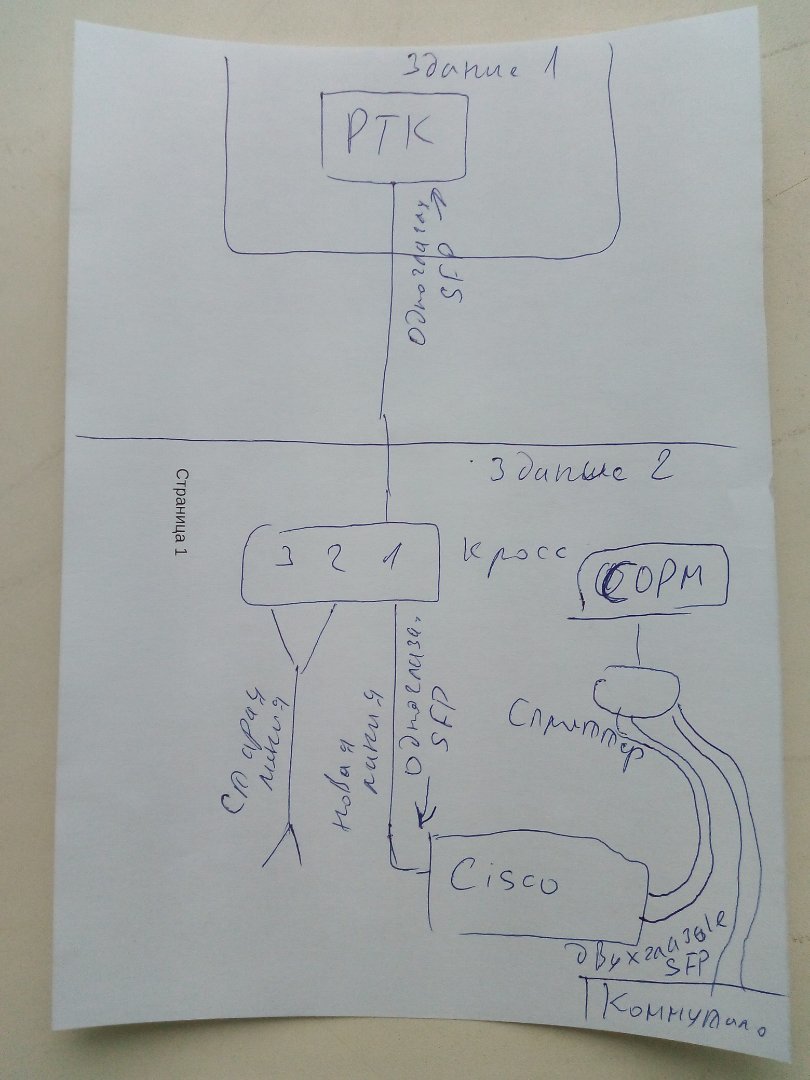 Здание 1
РТК
Одноглазых
SFP
Здание 2
Страница 1
3 2 1
кросс
СОРМ
Старая
линия
новая
линия
Одноглаза.
SFP
Сплиттер
Cisco
Двухглазые
SFP